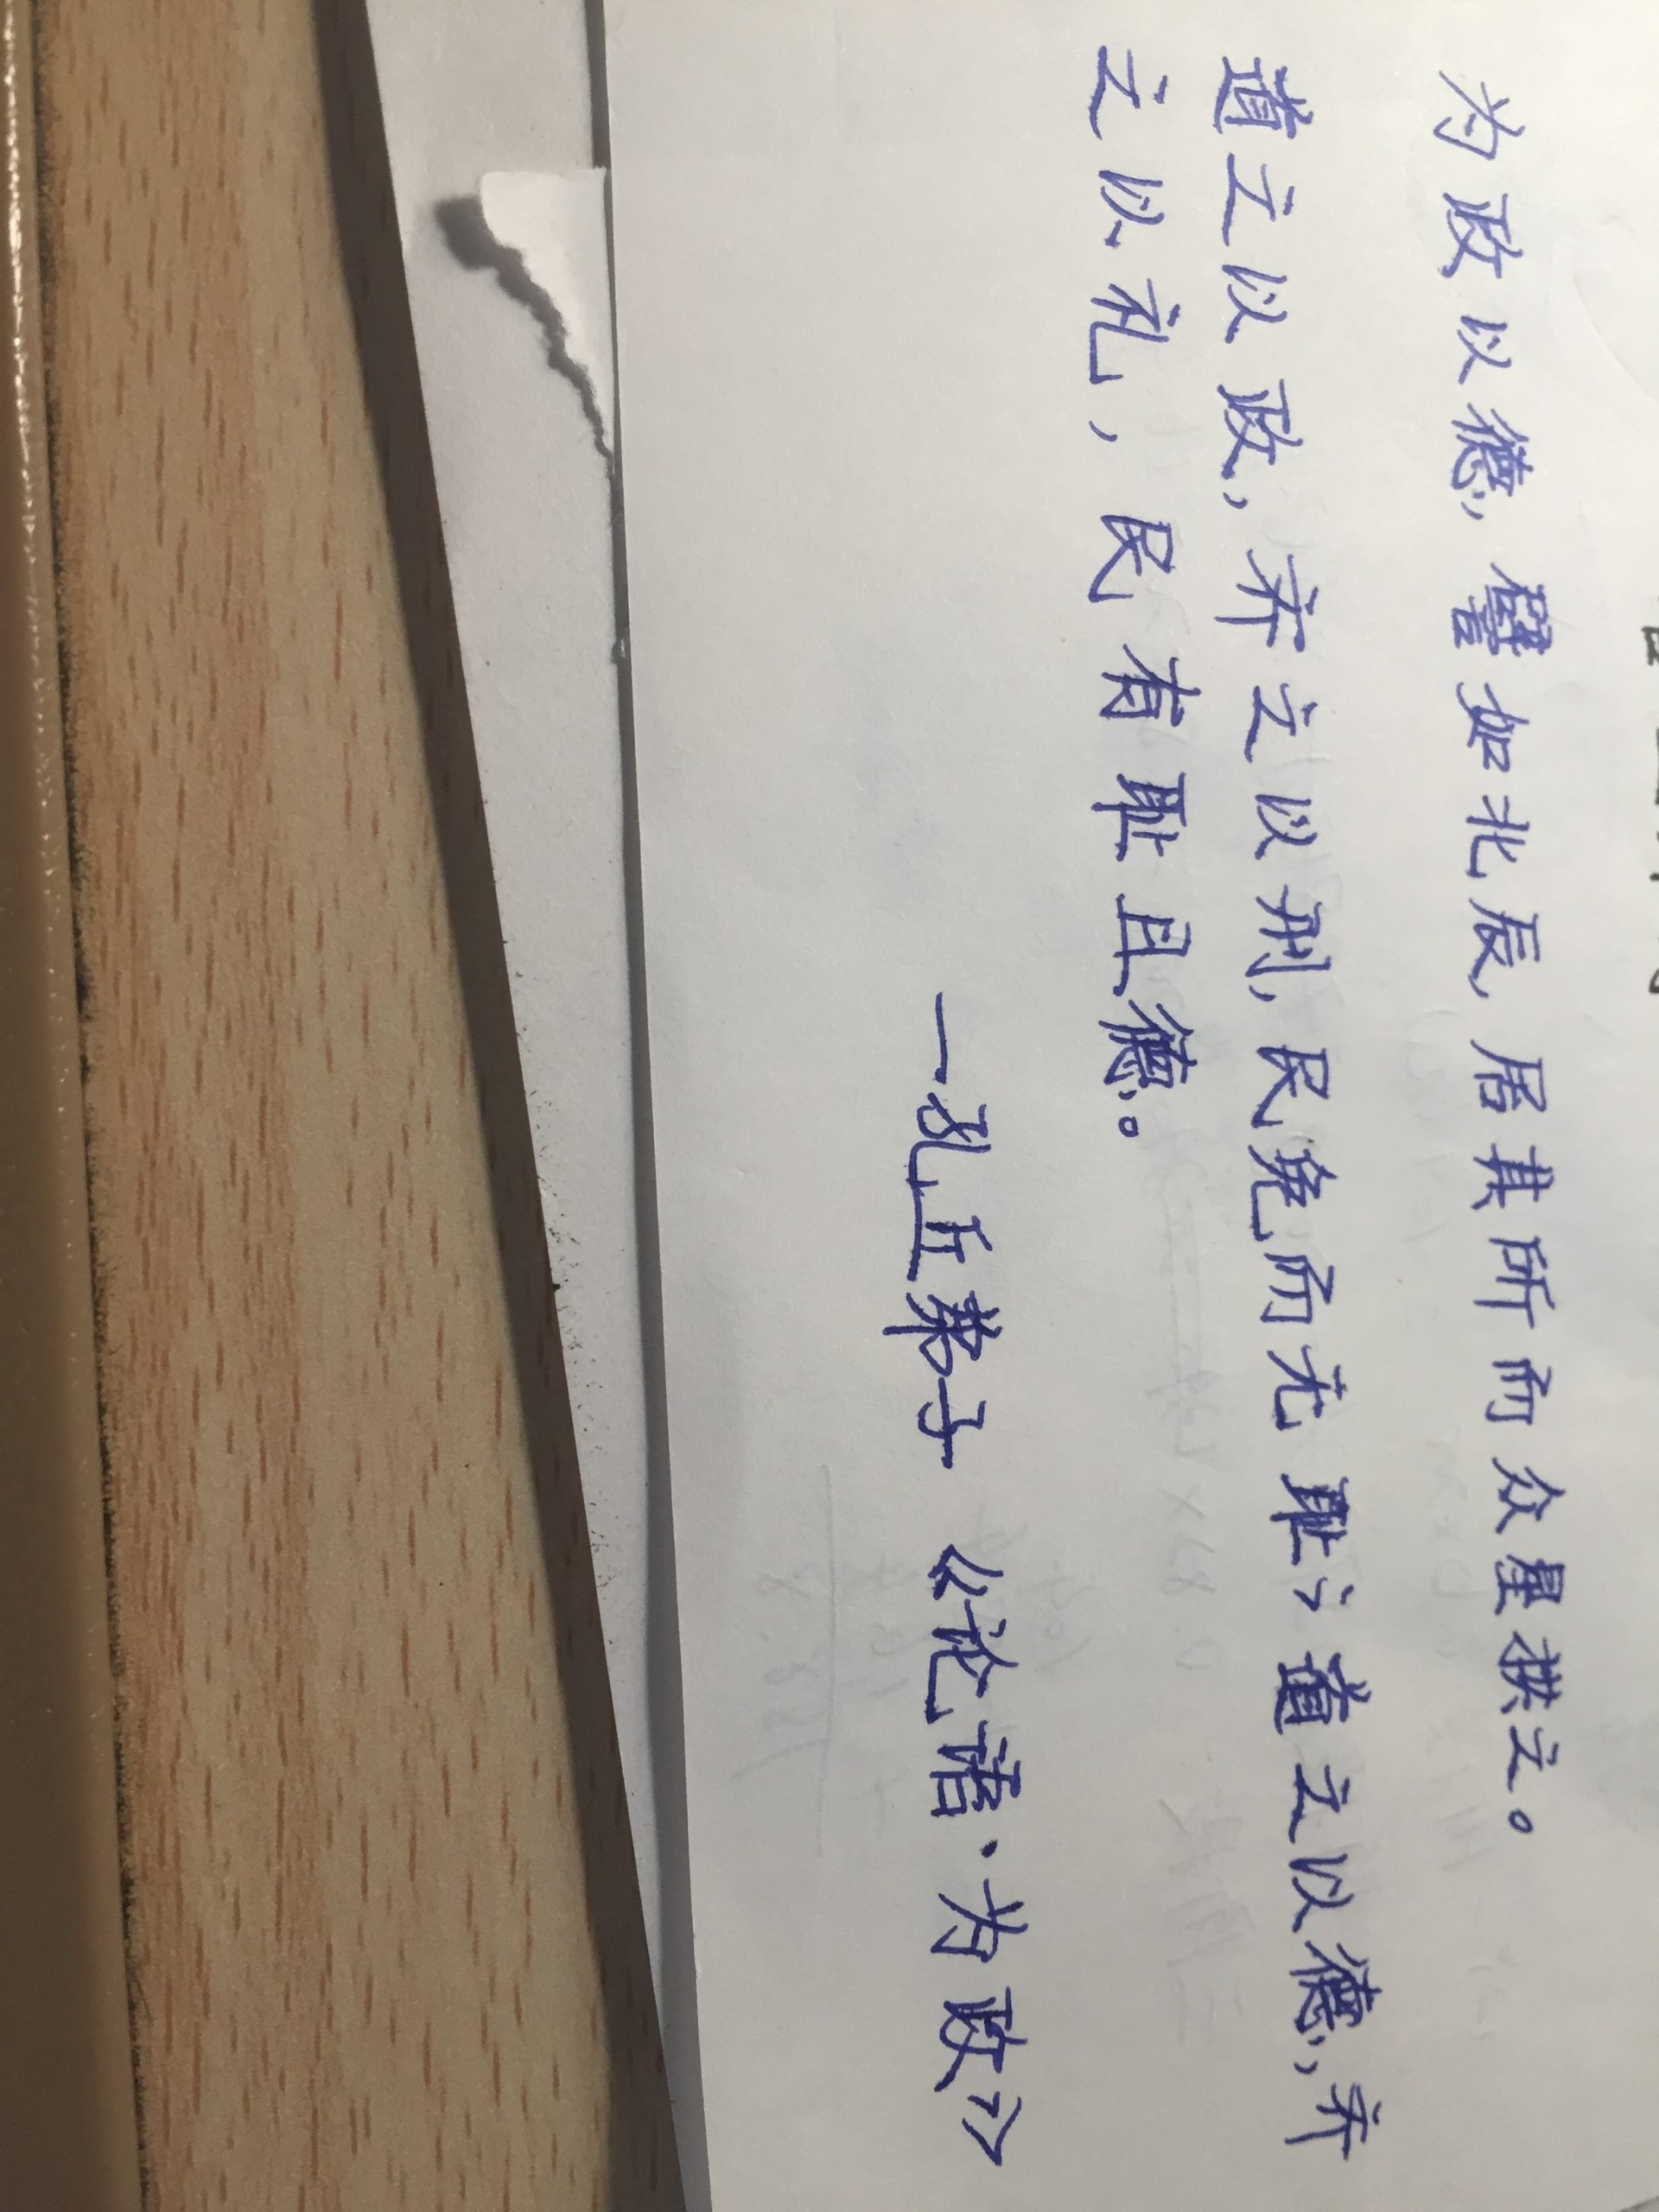 为政以德,譬如北辰,居其所而众星拱之。
道之以政,齐之以刑,民免而无耻;道之以德,齐
之以礼,民有耻且德。
—孔丘弟子《论语·为政》